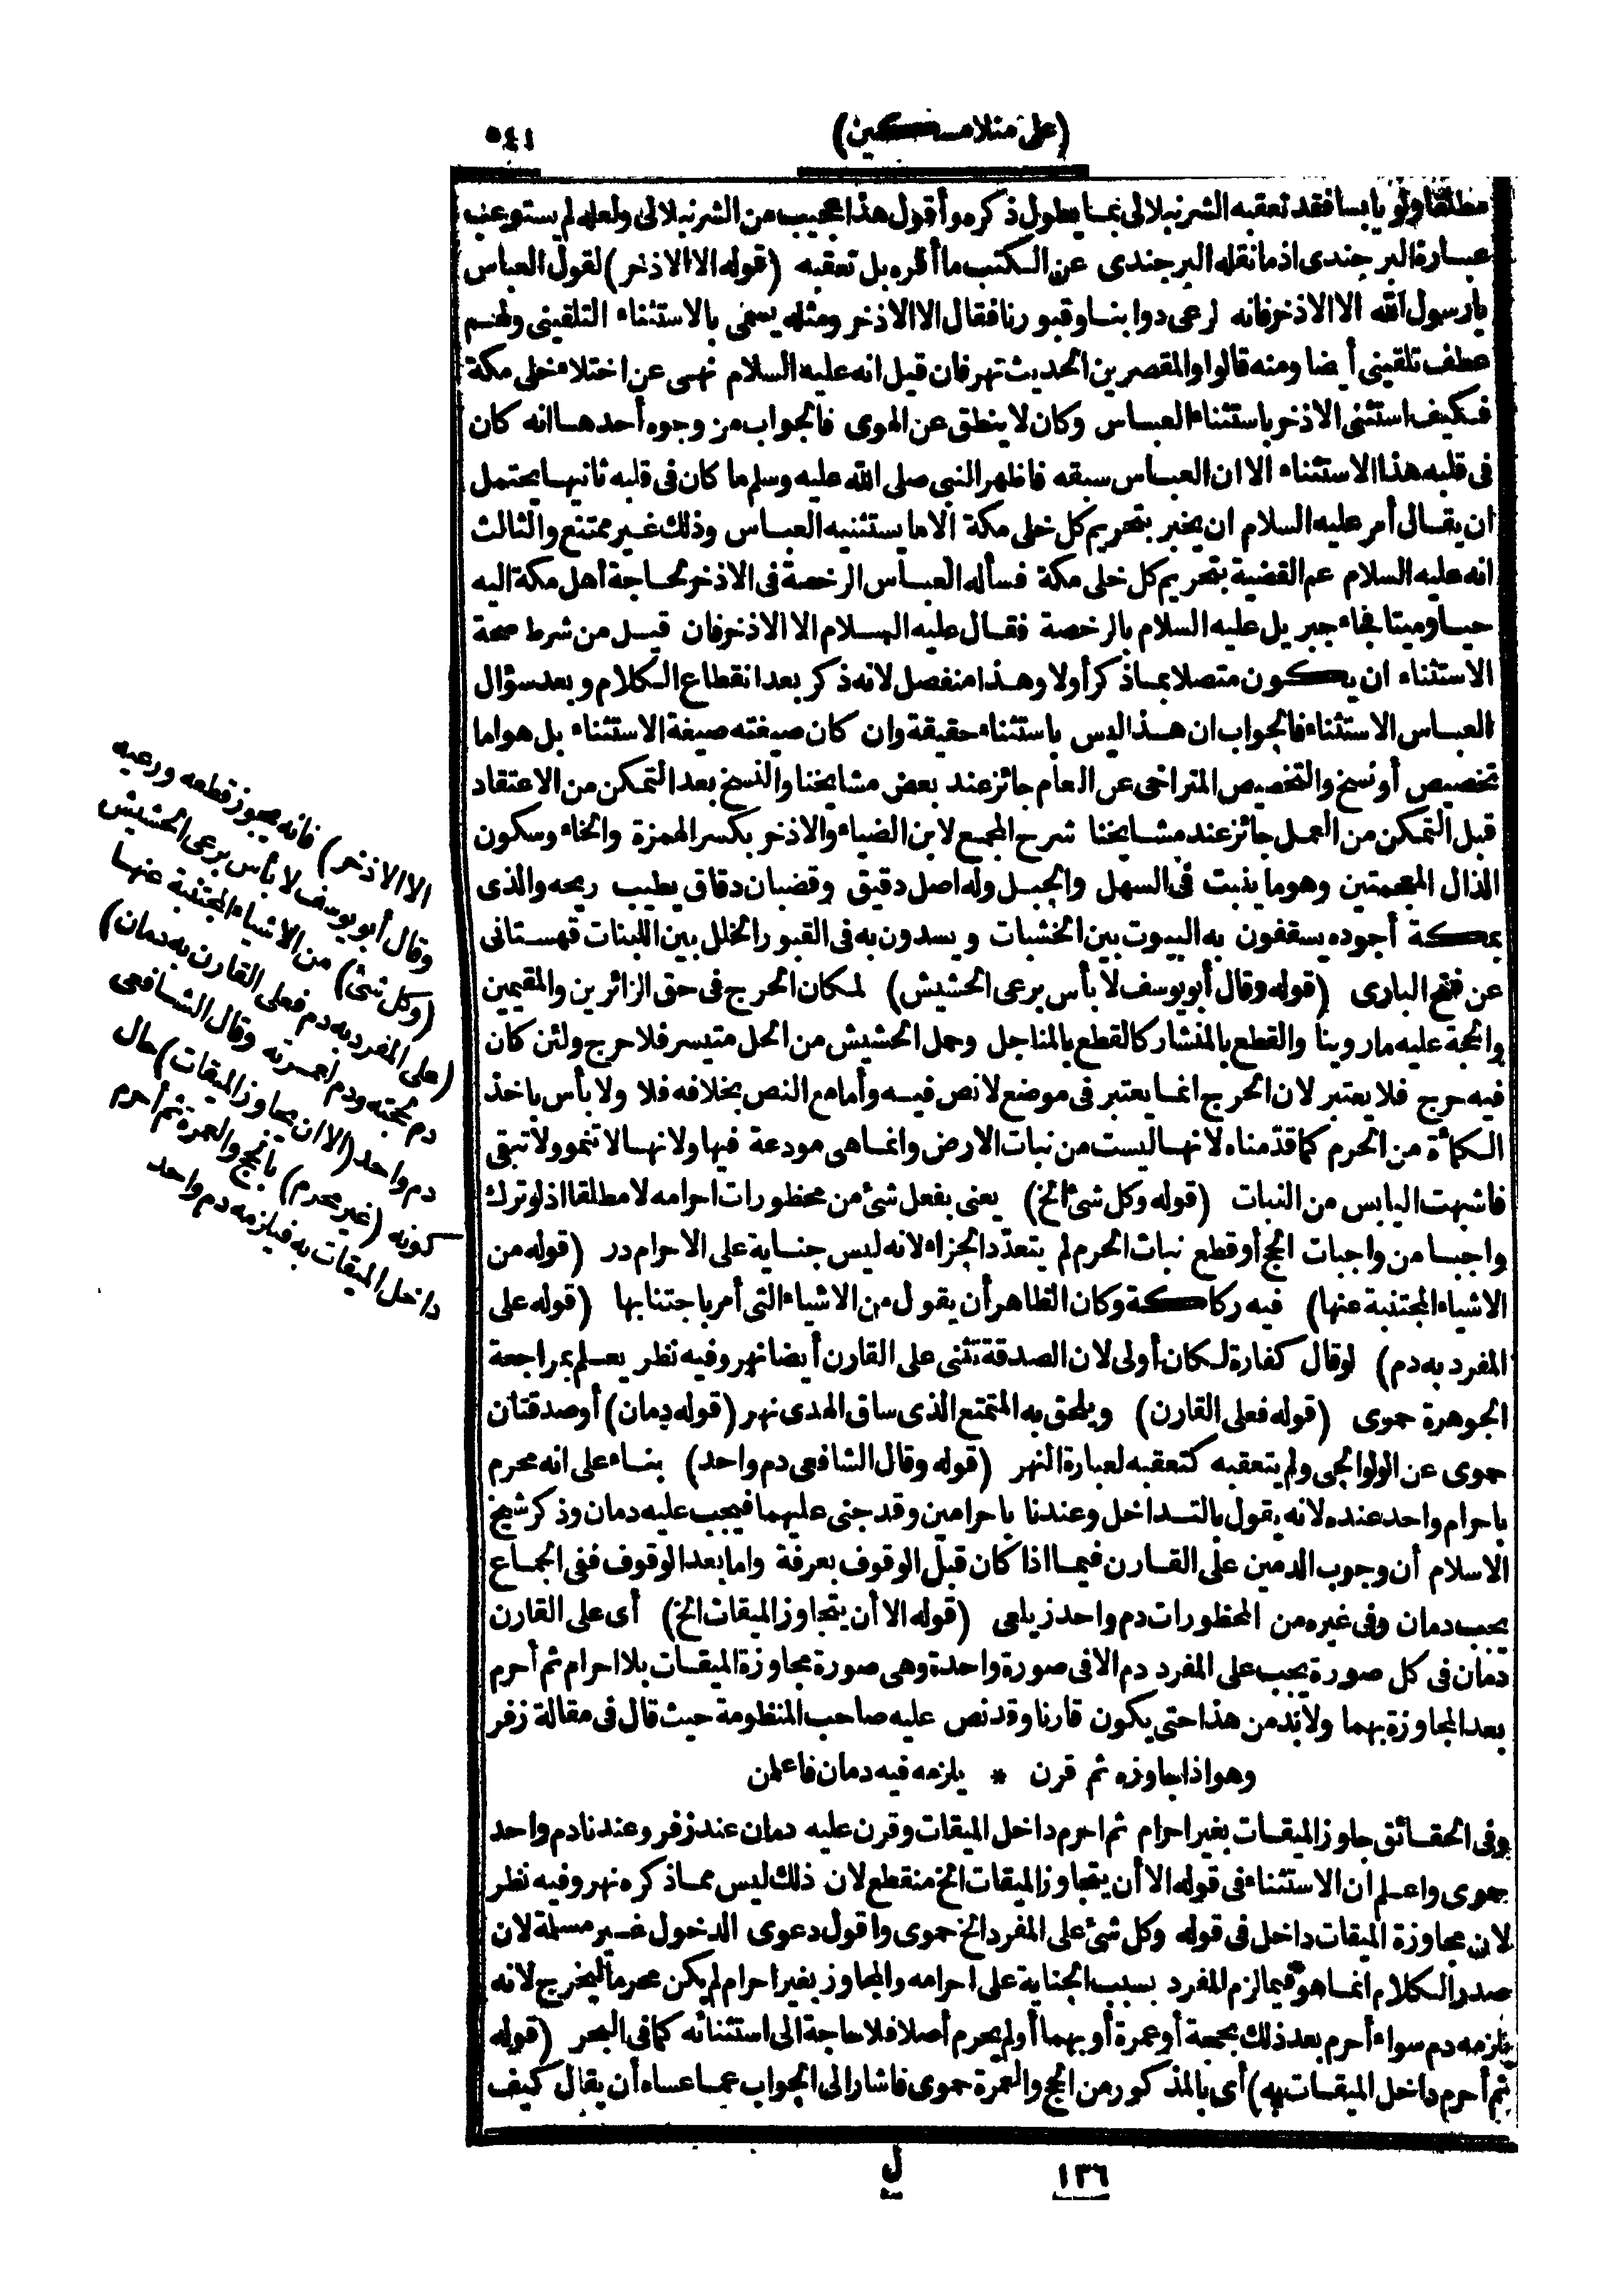 (على منلا مسكين)
٥٤١
مطلقا ولو يابسا فقد تعقبه الشرنبلالى بما يطول ذكره وأقول هذا عجيب من الشرنبلالى ولعله لم يستوعب
عبارة البرجندى اذ ما نقله البرجندى عن الكتب ما أقره بل تعقبه (قوله الا الاذخر) لقول العباس
يا رسول الله الا الاذخر فانه لرعى دوابنا وقبورنا فقال الا الاذخر ومثله يسمى بالاستثناء التلقينى ولهم
عطف تلقينى أيضا ومنه قالوا والمقصرين الحديث نهر فان قيل انه عليه السلام نهى عن اختلاء خلى مكة
فكيف استثنى الاذخر باستثناء العباس وكان لا ينطق عن الهوى فالجواب من وجوه أحدها انه كان
فى قلبه هذا الاستثناء الا ان العباس سبقه فاظهر النبى صلى الله عليه وسلم ما كان فى قلبه ثانيها يحتمل
ان يقال أمر عليه السلام ان يخبر بتحريم كل خلى مكة الا ما يستثنيه العباس وذلك غير ممتنع والثالث
انه عليه السلام عم القضية بتحريم كل خلى مكة فسأله العباس الرخصة فى الاذخر لحاجة أهل مكة اليه
حيا وميتا فجاء جبريل عليه السلام بالرخصة فقال عليه السلام الا الاذخر فان قيل من شرط صحة
الاستثناء ان يكون متصلا بما ذكر أولا وهذا منفصل لانه ذكر بعد انقطاع الكلام وبعد سؤال
العباس الاستثناء فالجواب ان هذا ليس باستثناء حقيقة وان كان صيغته صيغة الاستثناء بل هو اما
تخصيص أو نسخ والتخصيص المتراخى عن العام جائز عند بعض مشايخنا والنسخ بعد التمكن من الاعتقاد
قبل التمكن من العمل جائز عند مشايخنا شرح المجمع لابن الضياء والاذخر بكسر الهمزة والخاء وسكون
الذال المعجمتين وهو ما ينبت فى السهل والجبل وله اصل دقيق وقضبان دقاق يطيب ريحه والذى
بمكة أجوده يسقفون به البيوت بين الخشبات ويسدون به فى القبور الخلل بين اللبنات قهستانى
عن فتح البارى (قوله وقال أبو يوسف لا بأس برعى الحشيش) لمكان الحرج فى حق الزائرين والمقيمين
والحجة عليه ما روينا والقطع بالمنشار كالقطع بالمناجل وحمل الحشيش من الحل متيسر فلا حرج ولئن كان
فيه حرج فلا يعتبر لان الحرج انما يعتبر فى موضع لا نص فيه وأما مع النص بخلافه فلا ولا بأس باخذ
الكمأة من الحرم كما قدمناه لانها ليست من نبات الارض وانما هى مودعة فيها ولانها لا تنمو ولا تبقى
فاشبهت اليابس من النبات (قوله وكل شئ الخ) يعنى بفعل شئ من محظورات احرامه لا مطلقا اذ لو ترك
واجبا من واجبات الحج أو قطع نبات الحرم لم يتعدّد الجزاء لانه ليس جناية على الاحرام در (قوله من
الاشياء المجتنبة عنها) فيه ركاكة وكان الظاهر أن يقول من الاشياء التى أمر باجتنابها (قوله على
المفرد به دم) لو قال كفارة لكان أولى لان الصدقة تثنى على القارن أيضا نهر وفيه نظر يعلم بمراجعة
الجوهرة حموى (قوله فعلى القارن) ويلحق به المتمتع الذى ساق الهدى نهر (قوله دمان) أو صدقتان
حموى عن الولوالجى ولم يتعقبه كتعقبه لعبارة النهر (قوله وقال الشافعى دم واحد) بناء على انه محرم
باحرام واحد عنده لانه يقول بالتداخل وعندنا باحرامين وقد جنى عليهما فيجب عليه دمان وذكر شيخ
الاسلام أن وجوب الدمين على القارن فيما اذا كان قبل الوقوف بعرفة واما بعد الوقوف ففى الجماع
يجب دمان وفى غيره من المحظورات دم واحد زيلعى (قوله الا أن يتجاوز الميقات الخ) أى على القارن
دمان فى كل صورة يجب على المفرد دم الا فى صورة واحدة وهى صورة مجاوزة الميقات بلا احرام ثم أحرم
بعد المجاوزة بهما ولا بد من هذا حتى يكون قارنا وقد نص عليه صاحب المنظومة حيث قال فى مقالة زفر
وهو اذا جاوزه ثم قرن * يلزمه فيه دمان فاعلمن
وفى الحقائق جاوز الميقات بغير احرام ثم احرم داخل الميقات وقرن عليه دمان عند زفر وعندنا دم واحد
حموى واعلم ان الاستثناء فى قوله الا أن يتجاوز الميقات الخ منقطع لان ذلك ليس مما ذكره نهر وفيه نظر
لان مجاوزة الميقات داخل فى قوله وكل شئ على المفرد الخ حموى واقول دعوى الدخول غير مسلمة لان
صدر الكلام انما هو فيما لزم المفرد بسبب الجناية على احرامه والمجاوز بغير احرام لم يكن محرما ليخرج لانه
يلزمه دم سواء أحرم بعد ذلك بحجة أو عمرة أو بهما أو لم يحرم أصلا فلا حاجة الى استثنائه كما فى البحر (قوله
ثم أحرم داخل الميقات به) أى بالمذكور من الحج والعمرة حموى فاشار الى الجواب عما عساه أن يقال كيف
الا الاذخر) فانه يجوز قطعه ورعيه
وقال أبو يوسف لا بأس برعى الحشيش
(وكل شئ) من الاشياء المجتنبة عنها
(على المفرد به دم فعلى القارن به دمان)
دم لحجته ودم لعمرته وقال الشافعى
دم واحد (الا ان يجاوز الميقات) حال
كونه (غير محرم) بالحج والعمرة ثم أحرم
داخل الميقات به فيلزمه دم واحد
١٣٦
ل